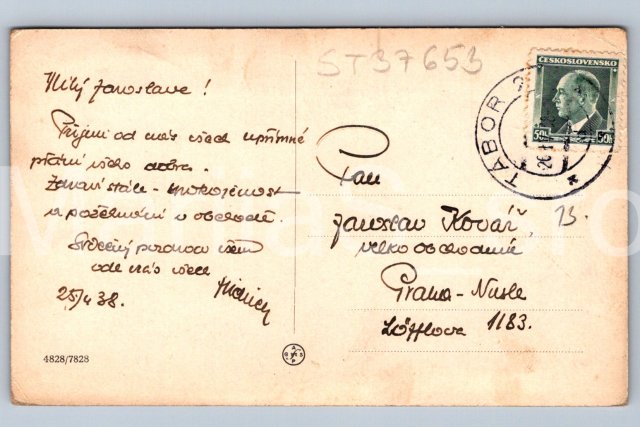 ST37653
ČESKOSLOVENSKO
50h 50h
TÁBOR
Milý Jaroslave!
Přijmi od nás všech upřímné
přání všeho dobra.
Zdraví stálé - spokojenost
a požehnání v obchodě.
Srdečný pozdrav všem
ode nás všech
25/4 38.
Pan
Jaroslav Kovář, 13.
velkoobchodník
Praha-Nusle
Löfflova 1183.
4828/7828